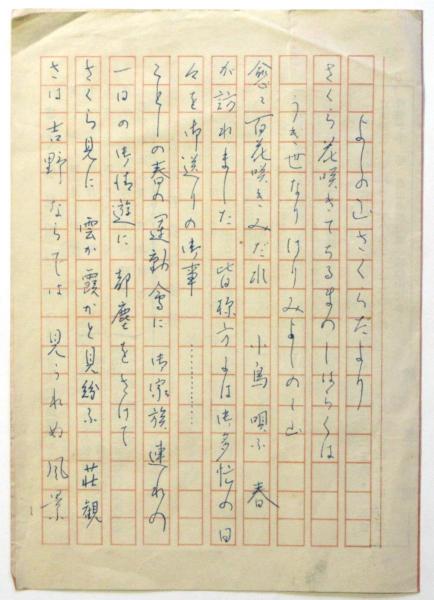 よしの山さくらだより
さくら花咲きてちるまのしばらくは
うき世なりけりみよしのゝ山
愈々百花咲きみだれ 小鳥唄ふ 春
が訪れました 皆様方には御多忙の日
々を御送りの御事…………
ことしの春の運動会に 御家族連れの
一日の御清遊に 都塵をさけて
さくら見に 雲か霞かと見紛ふ 荘観
さは 吉野ならでは 見られぬ風景